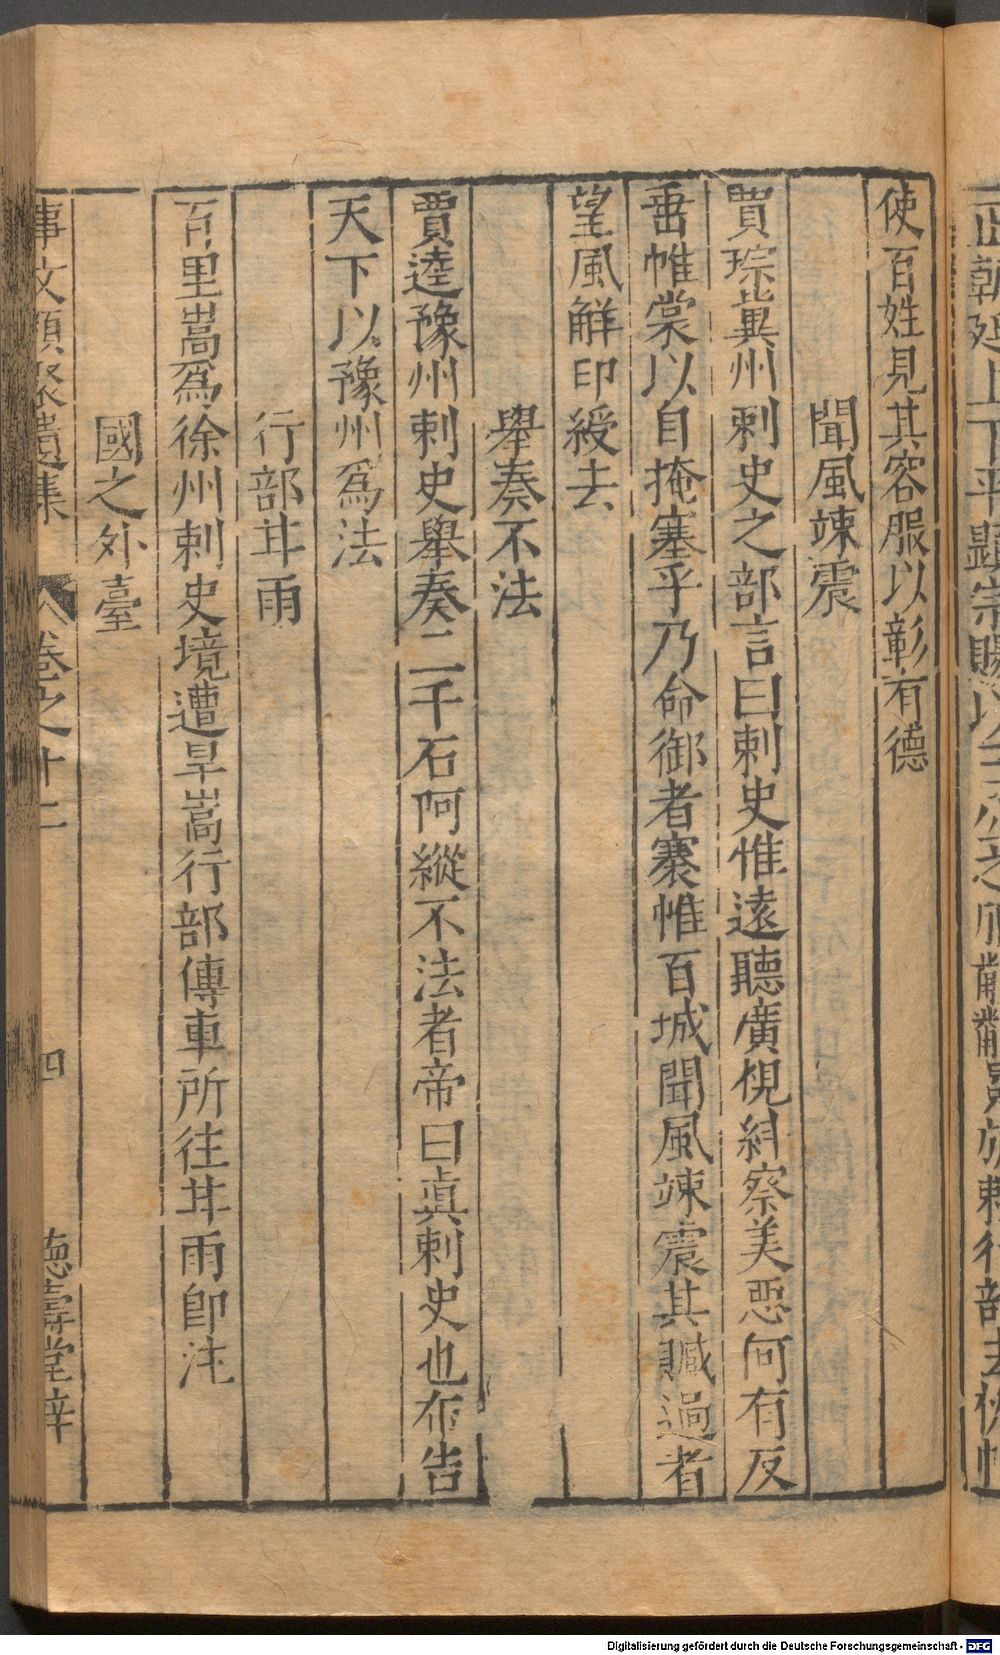 使百姓見其容服以彰有德
聞風竦震
賈琮冀州刺史之部言曰刺史惟遠聽廣視糾察美惡何有反
垂帷裳以自掩塞乎乃命御者褰帷百城聞風竦震其贓過者
望風解印綬去
舉奏不法
賈逵豫州刺史舉奏二千石阿縱不法者帝曰眞刺史也布告
天下以豫州爲法
行部甘雨
百里嵩爲徐州刺史境遭旱嵩行部傳車所往甘雨卽注
國之外臺
事文類聚遺集 卷之十二 四 德壽堂梓
Digitalisierung gefördert durch die Deutsche Forschungsgemeinschaft - DFG